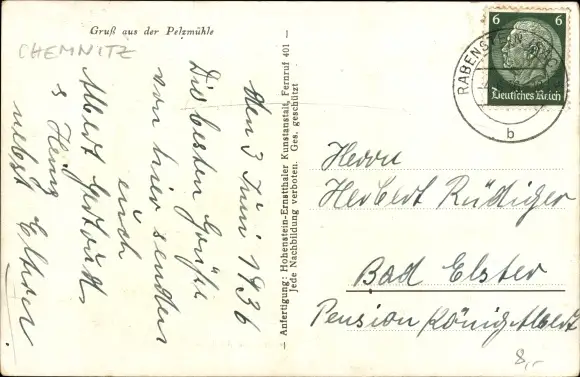 Gruß aus der Pelzmühle
CHEMNITZ
den 3 Juni 1936
Die besten Grüße
von hier senden
euch
Albert Gertrud,
s Heinz
nebst Eltern
Anfertigung: Hohenstein-Ernstthaler Kunstanstalt, Fernruf 401 —
Jede Nachbildung verboten. Ges. geschützt
6 6
Deutsches Reich
RABENSTEIN
b
Herrn
Herbert Rüdiger
Bad Elster
Pension König Albert
8,-